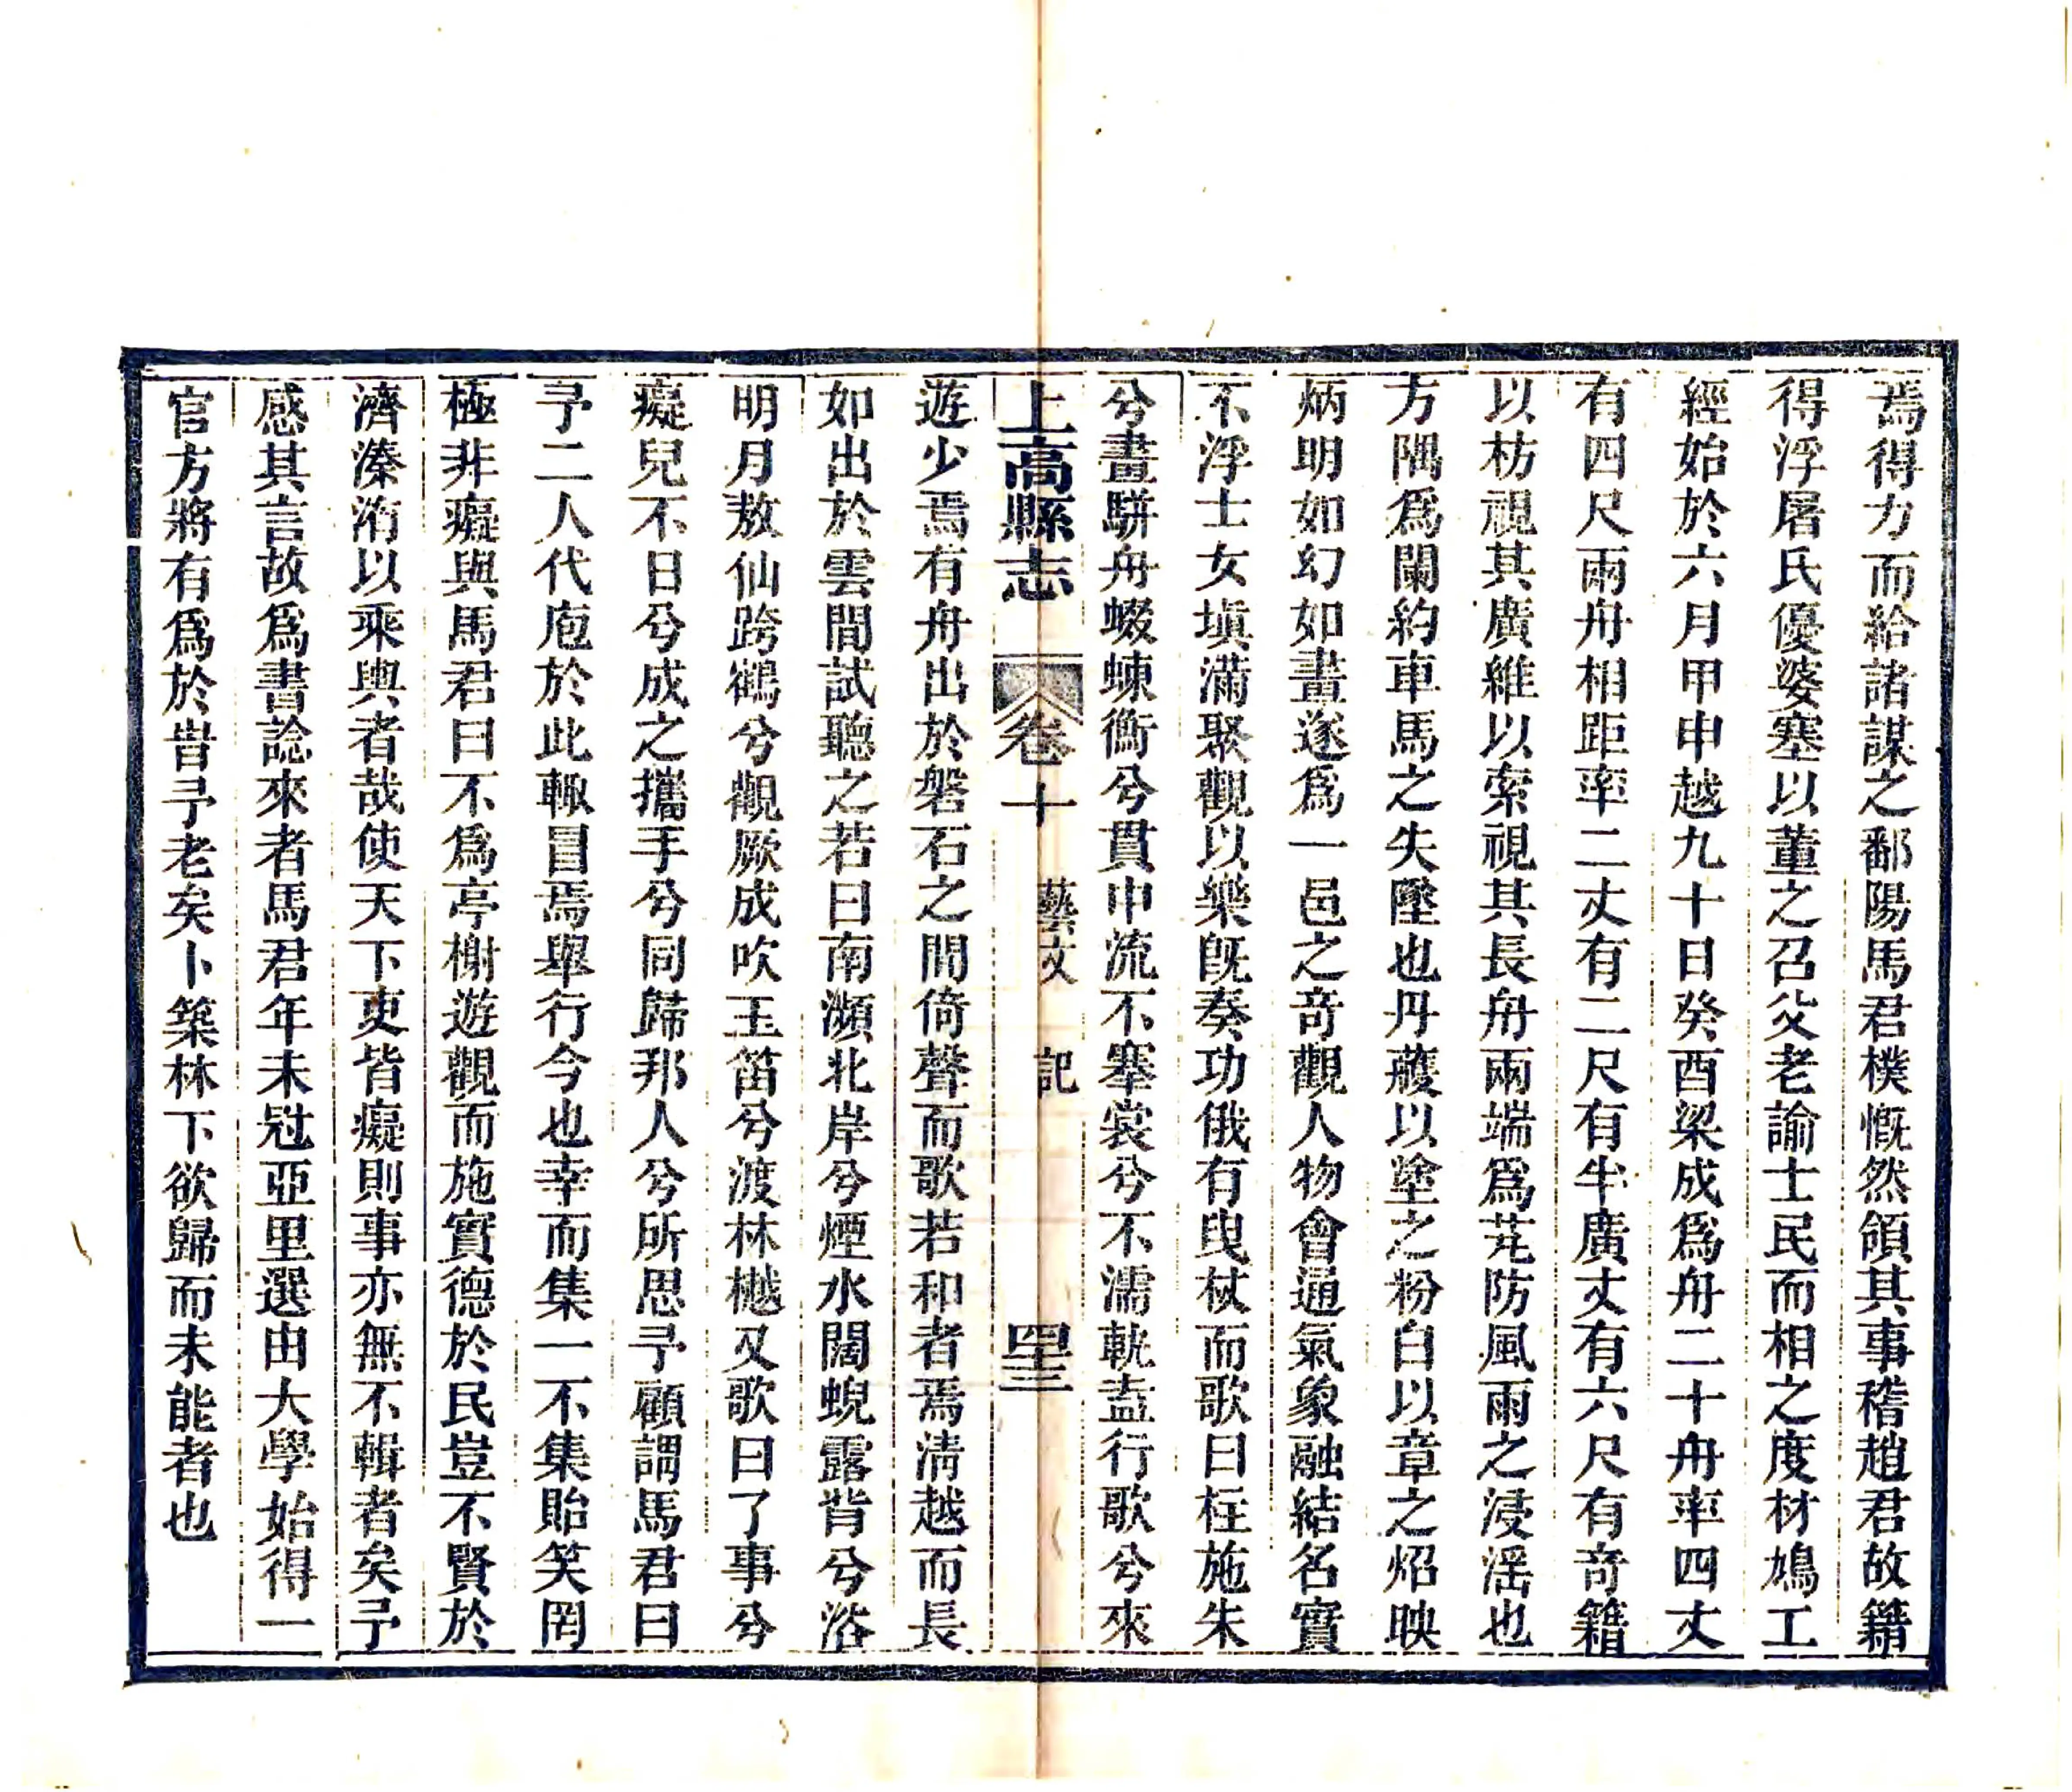 焉得力而給諸謀之鄱陽馬君樸慨然領其事稽趙君故籍
得浮屠氏優婆塞以董之召父老諭士民而相之度材鳩工
經始於六月甲申越九十日癸酉梁成爲舟二十舟率四丈
有四尺兩舟相距率二丈有二尺有半廣丈有六尺有奇籍
以枋視其廣維以索視其長舟兩端爲芘防風雨之浸淫也
方隅爲闌約車馬之失墜也丹雘以塗之粉白以章之炤映
炳明如幻如畫遂爲一邑之奇觀人物會通氣象融結名實
不浮士女塡滿聚觀以樂旣奏功俄有叟杖而歌曰枉施朱
兮畫駢舟蝃蝀衡兮貫中流不搴裳兮不濡軌盍行歌兮來
上高縣志 卷十 藝文 記 四三
遊少焉有舟出於磐石之間倚聲而歌若和者焉淸越而長
如出於雲間試聽之若曰南瀕北岸兮煙水闊蜺露背兮浴
明月敖仙跨鶴兮觀厥成吹玉笛兮渡林樾又歌曰了事兮
癡兒不日兮成之攜手兮同歸邦人兮所思予顧謂馬君曰
予二人代庖於此輒冒焉舉行今也幸而集一不集貽笑罔
極非癡與馬君曰不爲亭榭遊觀而施實德於民豈不賢於
濟溱洧以乘輿者哉使天下吏皆癡則事亦無不輯者矣予
感其言故爲書諗來者馬君年未冠亞里選由大學始得一
官方將有爲於旹予老矣卜築林下欲歸而未能者也